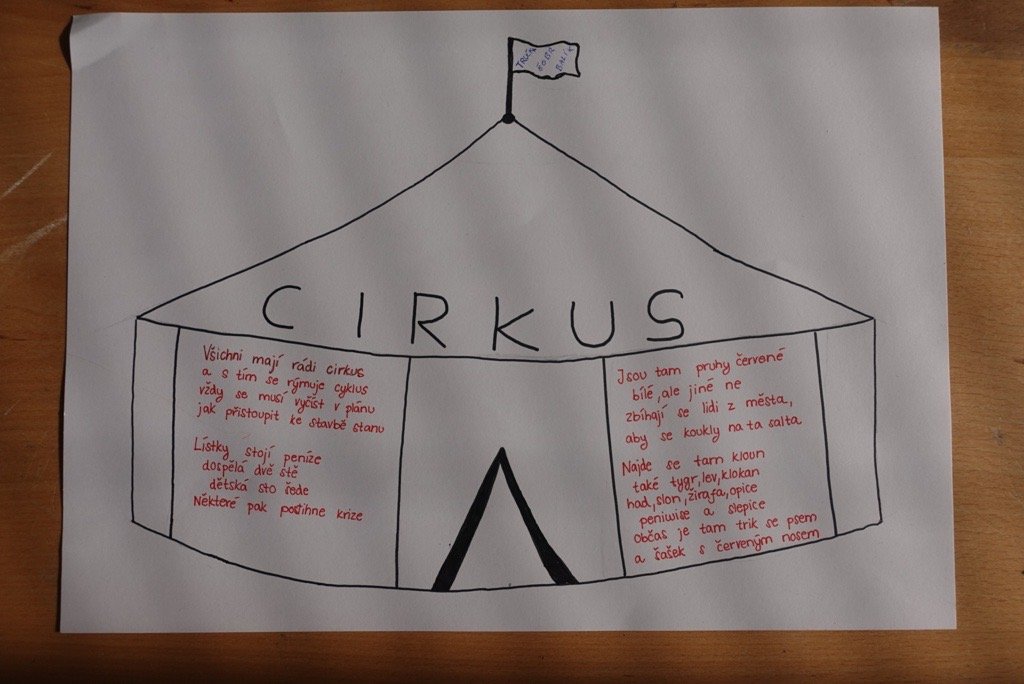 CIRKUS
Všichni mají rádi cirkus
a s tím se rýmuje cyklus
vždy se musí vyčíst v plánu
jak přistoupit ke stavbě stanu
Lístky stojí peníze
dospělá dvě stě
dětská sto šede
Některé pak postihne krize
Jsou tam pruhy červené
bílé, ale jiné ne
zbíhají se lidi z města,
aby se koukly na ta salta
Najde se tam kloun
také tygr, lev, klokan
had, slon, žirafa, opice
peniwise a slepice
občas je tam trik se psem
a šašek s červeným nosem